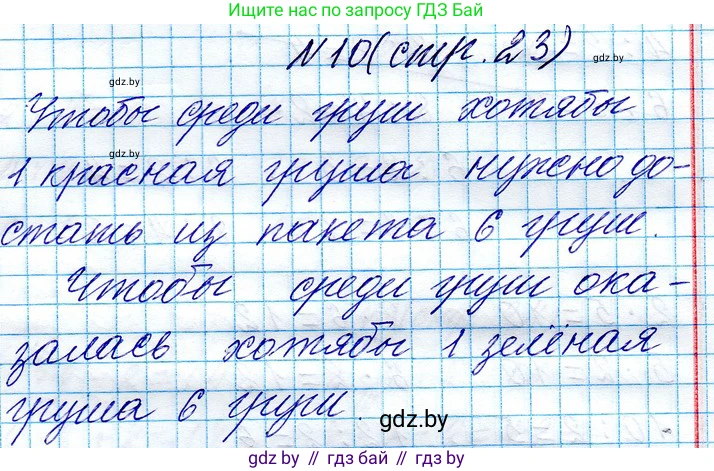 Ищите нас по запросу ГДЗ Бай
N 10 (стр. 23)
gdz.by
gdz.by
Чтобы среди груш хотябы
gdz.by
1 красная груша нужно до-
стать из пакета 6 груш.
Чтобы среди груш ока-
залась хотябы 1 зелёная
груша 6 груш.
gdz.by
gdz.by // гдз бай // gdz.by